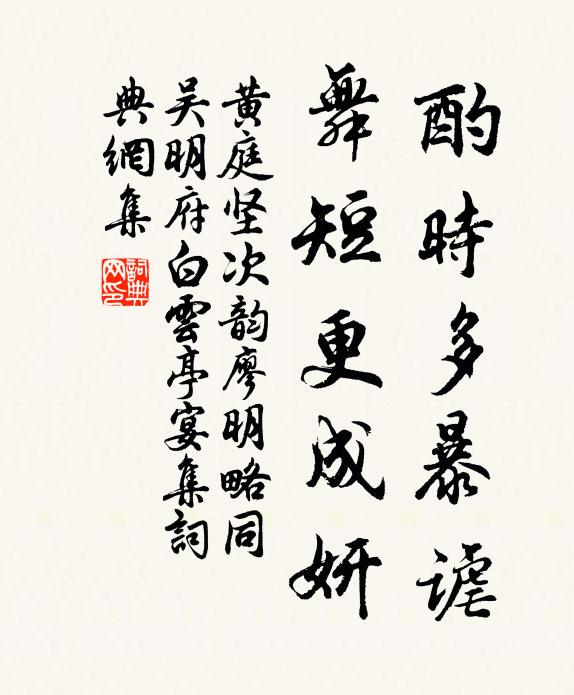 酌時多暴謔
舞短更成妍
黄庭坚次韵廖明略同
吴明府白雲亭宴集詞
典網集
詞典网印